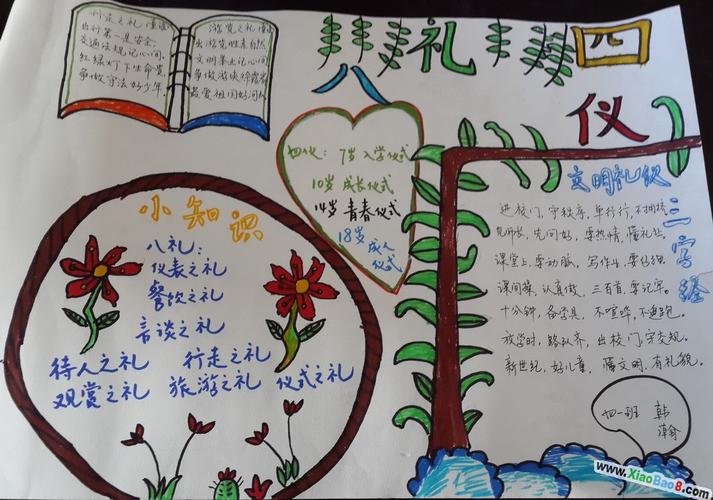 八礼四仪
行走之礼
出行第一是安全,
交通法规记心间,
红绿灯下生命宽
争做守法好少年
游览之礼
出游览胜亲自然
文明举止记心间
争做游侠徐霞客
最爱祖国好河山
四仪: 7岁 入学仪式
10岁 成长仪式
14岁 青春仪式
18岁 成人
仪式
小知识
八礼:
仪表之礼
餐饮之礼
言谈之礼
待人之礼 行走之礼
观赏之礼 旅游之礼 仪式之礼
文明礼仪三字经
进校门,守秩序,单行行,不拥挤
见师长,先问好,要热情,懂礼让。
课堂上,要动脑,写作业,要仔细
课间操,认真做,三百首,要记牢。
十分钟,备学具,不喧哗,不追跑。
放学时,路队齐,出校门,守交规。
新世纪,好儿童,懂文明,有礼貌。
四一班 韩
瀚
www.XiaoBao8.com